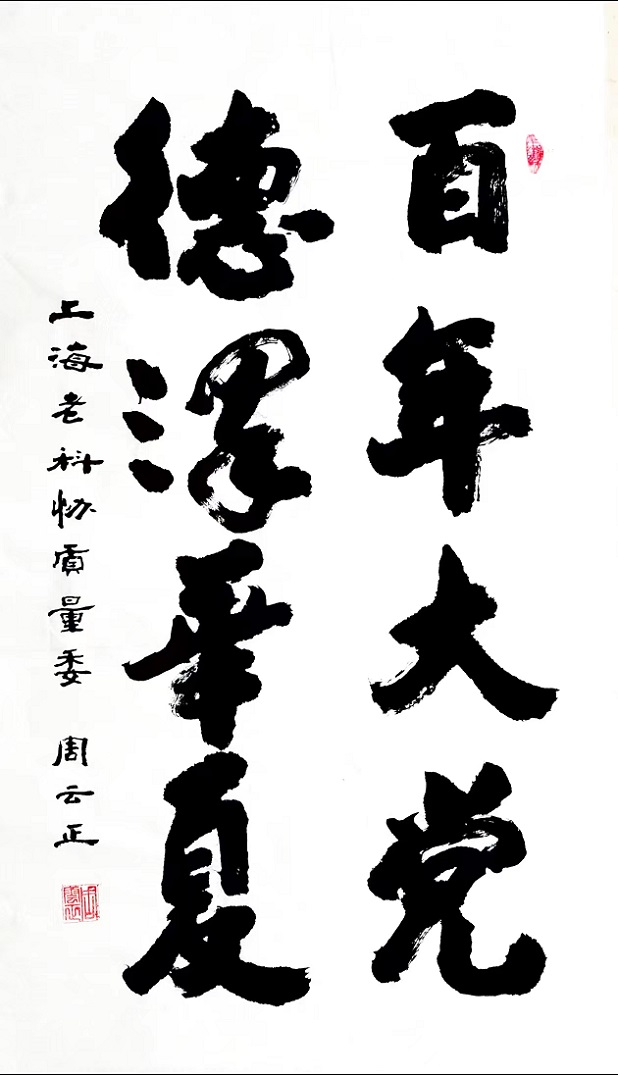 百年大党
德澤華夏
上海老科协质量委 周云正